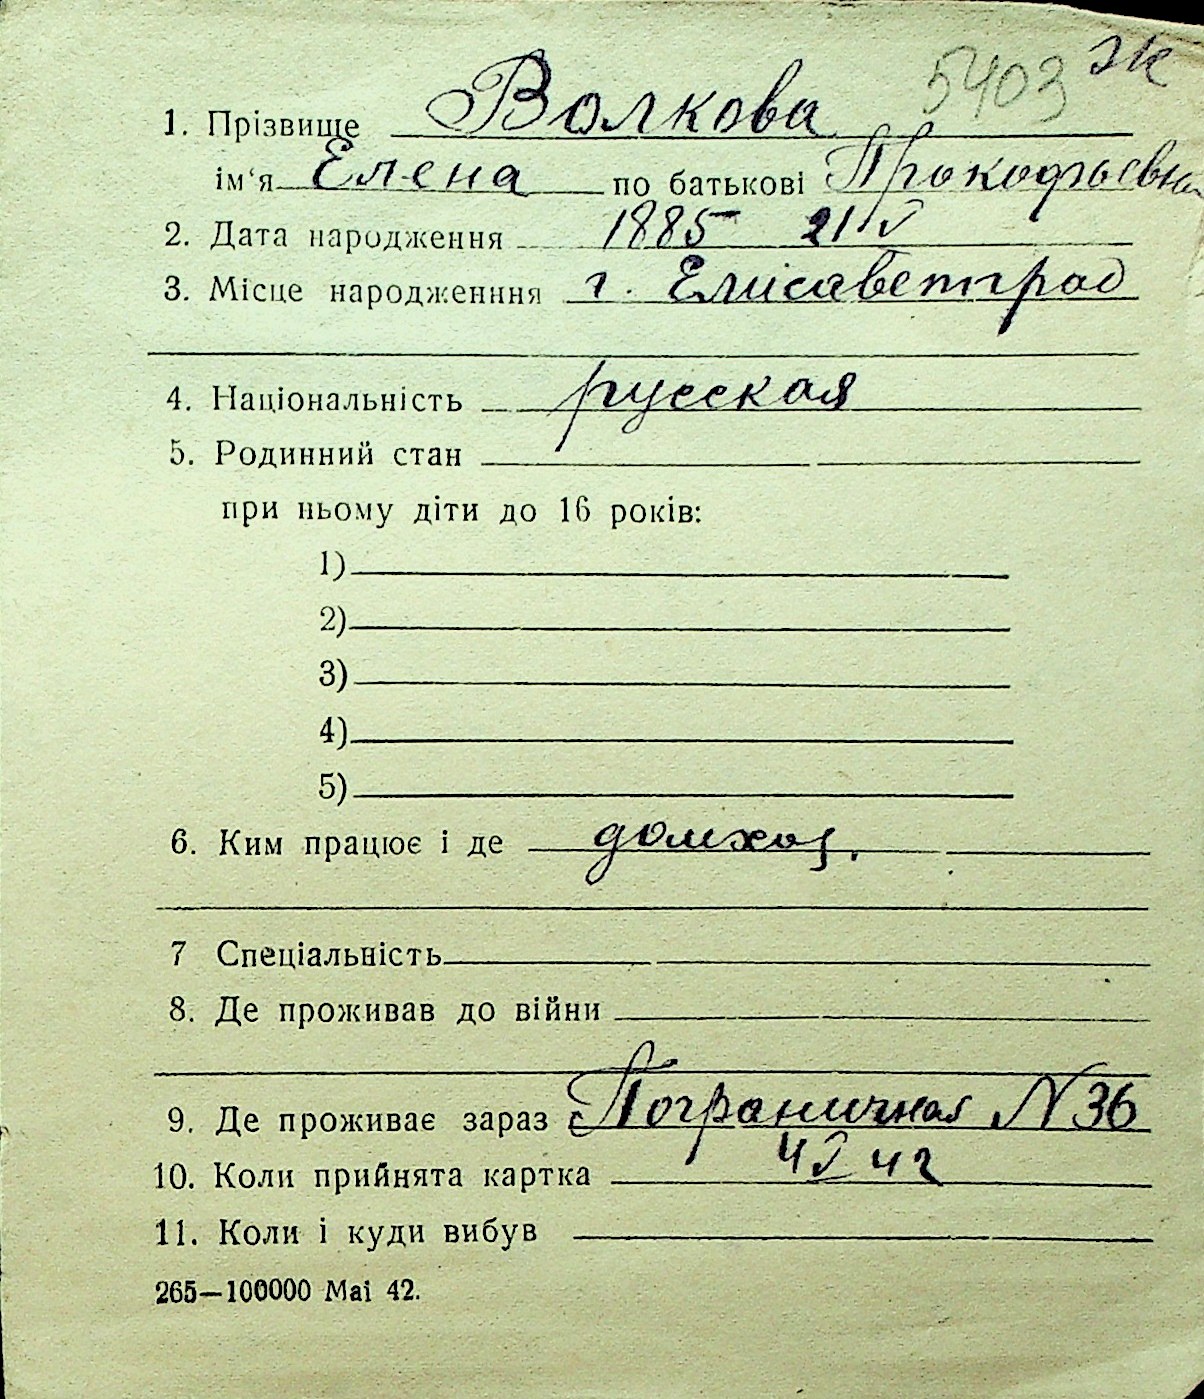 5403 ЖК
1. Прізвище Волкова
ім‘я Елена по батькові Прокофьевна
2. Дата народження 1885 21 V
3. Місце народженння г. Елисаветград
4. Національність русская
5. Родинний стан
при ньому діти до 16 років:
1)
2)
3)
4)
5)
6. Ким працює і де домхоз.
7 Спеціальність
8. Де проживав до війни
9. Де проживає зараз Пограничная N 36
10. Коли прийнята картка 4 V 42
11. Коли і куди вибув
265—100000 Mai 42.